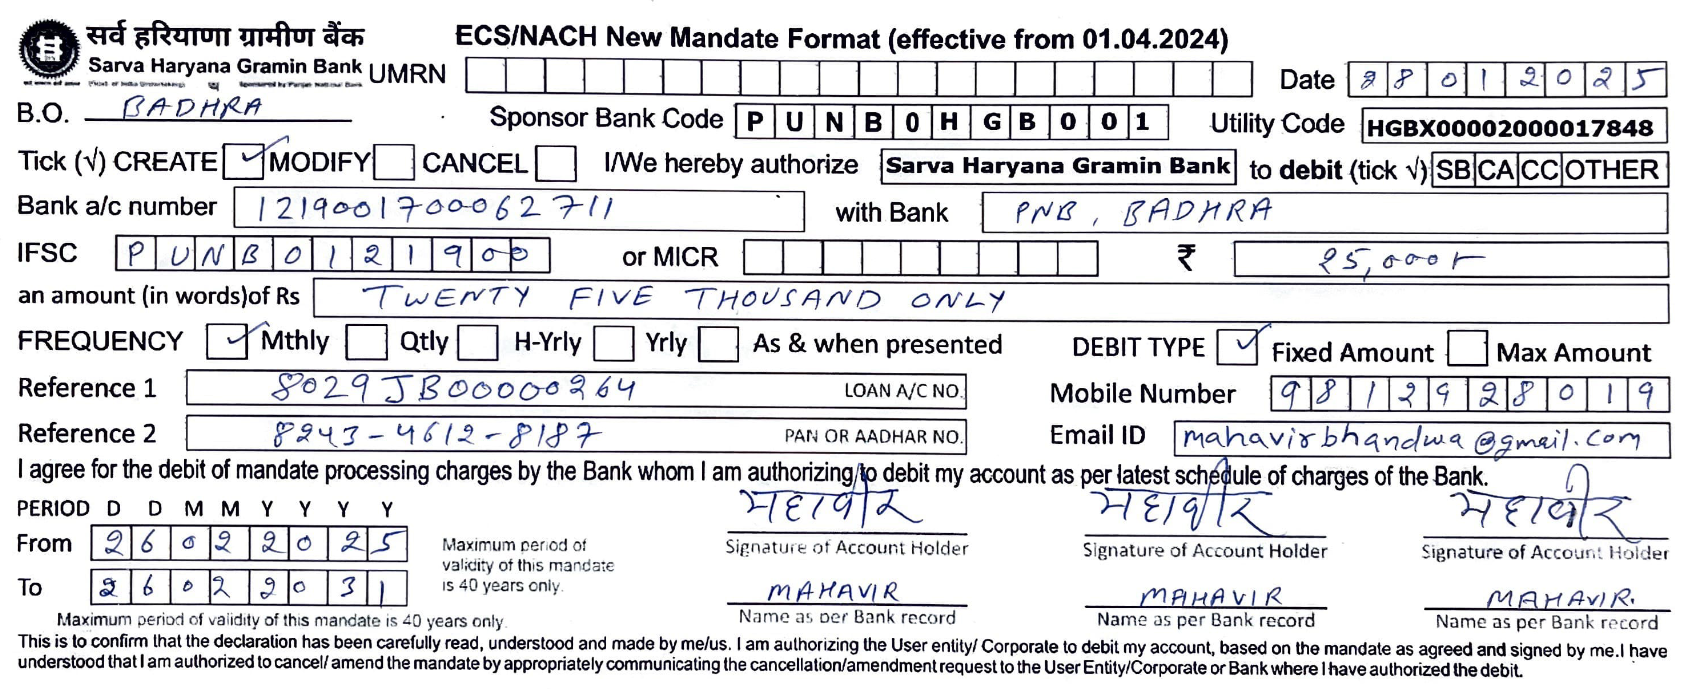 सर्व हरियाणा ग्रामीण बैंक ECS/NACH New Mandate Format (effective from 01.04.2024)
Sarva Haryana Gramin Bank UMRN Date 28012025
B.O. BADHRA Sponsor Bank Code PUNB0HGB001 Utility Code HGBX00002000017848
Tick (√) CREATE ✓ MODIFY CANCEL I/We hereby authorize Sarva Haryana Gramin Bank to debit (tick √) SB CA CC OTHER
Bank a/c number 1219001700062711 with Bank PNB, BADHRA
IFSC PUNB0121900 or MICR ₹ 25,000/-
an amount (in words)of Rs TWENTY FIVE THOUSAND ONLY
FREQUENCY ✓ Mthly Qtly H-Yrly Yrly As & when presented DEBIT TYPE ✓ Fixed Amount Max Amount
Reference 1 8029JB00000264 LOAN A/C NO. Mobile Number 9812928019
Reference 2 8243-4612-8187 PAN OR AADHAR NO. Email ID mahavirbhandwa@gmail.com
I agree for the debit of mandate processing charges by the Bank whom I am authorizing to debit my account as per latest schedule of charges of the Bank.
PERIOD D D M M Y Y Y Y महावीर महावीर महावीर
From 26022025 Maximum period of validity of this mandate is 40 years only. Signature of Account Holder Signature of Account Holder Signature of Account Holder
To 26022031 MAHAVIR MAHAVIR MAHAVIR.
Maximum period of validity of this mandate is 40 years only. Name as per Bank record Name as per Bank record Name as per Bank record
This is to confirm that the declaration has been carefully read, understood and made by me/us. I am authorizing the User entity/ Corporate to debit my account, based on the mandate as agreed and signed by me.I have
understood that I am authorized to cancel/ amend the mandate by appropriately communicating the cancellation/amendment request to the User Entity/Corporate or Bank where I have authorized the debit.